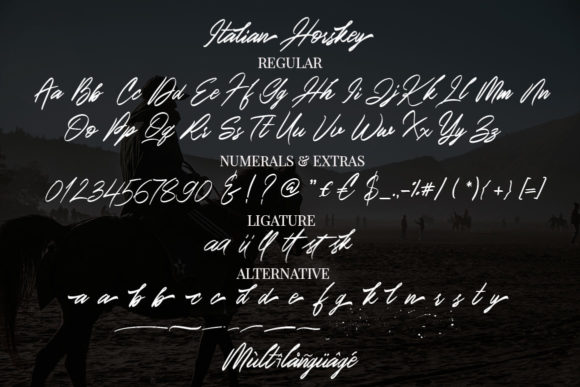 Italian Horskey
REGULAR
Aa Bb Cc Dd Ee Ff Gg Hh Ii Jj Kk Ll Mm Nn
Oo Pp Qq Rr Ss Tt Uu Vv Ww Xx Yy Zz
NUMERALS & EXTRAS
01234567890 & ! ? @ " £ € $ _ . , - % # / ( * ) { + } [ = ]
LIGATURE
aa ii ll tt st sk
ALTERNATIVE
a a b b c c d d e f g k l n r s t y
Mùltîlåñgüâgé